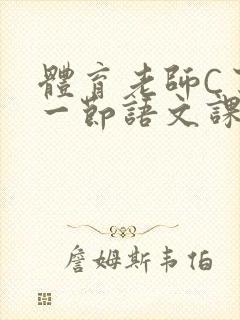 體育老師C
一節語文課
詹姆斯韦伯